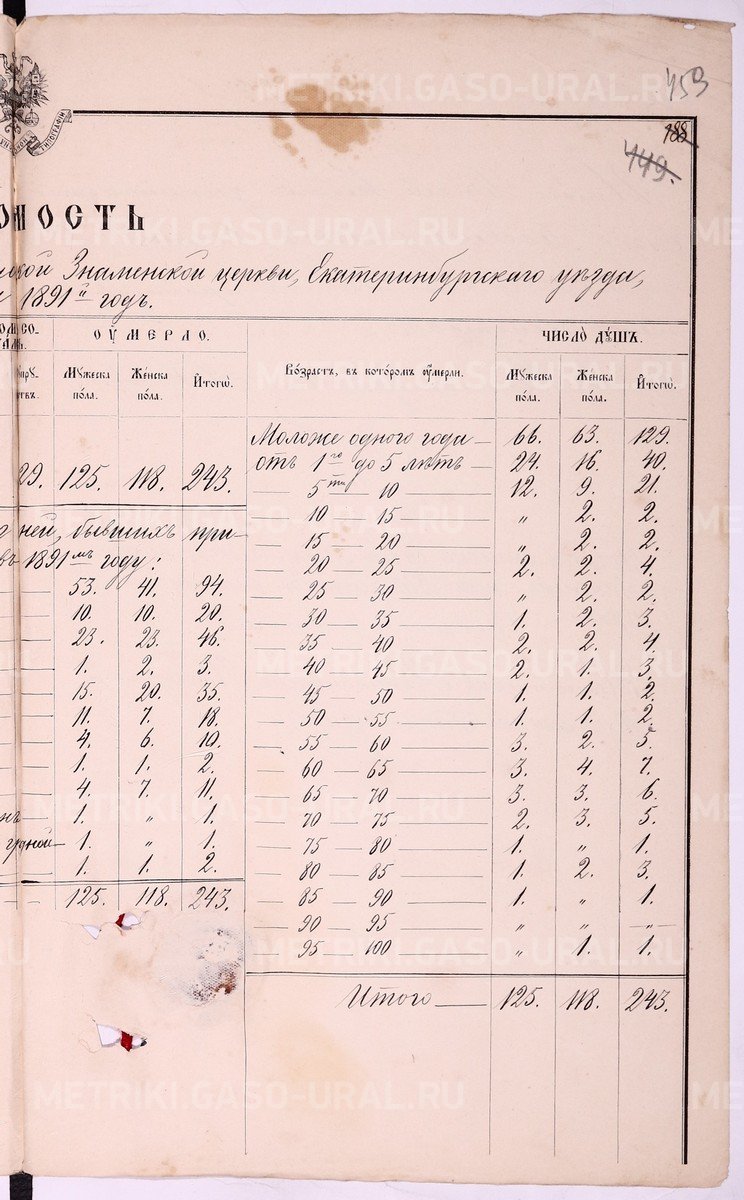 453
188
449.
ТИПОГРАФІИ
ОМОСТЬ
Знаменской церкви, Екатеринбургскаго уѣзда,
1891й годъ.
ОУМЕРЛО.
Мужеска пола. Женска пола. Итогѡ.
29. 125. 118. 243.
ней, бывшихъ при-
въ 1891мъ году:
53. 41. 94.
10. 10. 20.
23. 23. 46.
1. 2. 3.
15. 20. 35.
11. 7. 18.
4. 6. 10.
1. 1. 2.
4. 7. 11.
1. „ 1.
1. „ 1.
1. 1. 2.
125. 118. 243.
Возрастъ, въ которомъ оумерли. ЧИСЛО ДУШЪ.
Мужеска пола. Женска пола. Итогѡ.
Моложе одного года — 66. 63. 129.
отъ 1го до 5 лѣтъ — 24. 16. 40.
— 5ти — 10 — 12. 9. 21.
— 10 — 15 — „ 2. 2.
— 15 — 20 — „ 2. 2.
— 20 — 25 — 2. 2. 4.
— 25 — 30 — „ 2. 2.
— 30 — 35 — 1. 2. 3.
— 35 — 40 — 2. 2. 4.
— 40 — 45 — 2. 1. 3.
— 45 — 50 — 1. 1. 2.
— 50 — 55 — 1. 1. 2.
— 55 — 60 — 3. 2. 5.
— 60 — 65 — 3. 4. 7.
— 65 — 70 — 3. 3. 6.
— 70 — 75 — 2. 3. 5.
— 75 — 80 — 1. „ 1.
— 80 — 85 — 1. 2. 3.
— 85 — 90 — 1. „ 1.
— 90 — 95 — „ „ „
— 95 — 100 — „ 1. 1.
Итого — 125. 118. 243.
METRIKI.GASO-URAL.RU